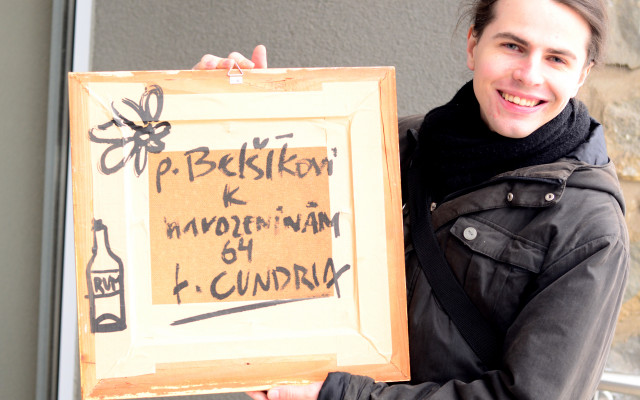 p. Belšíkovi
k
narozeninám
64
t. CUNDRIA
RUM